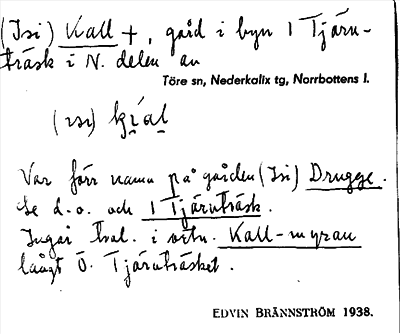 (Isi) Kall +, gård i byn 1 Tjärn-
träsk i N. delen av
Töre sn, Nederkalix tg, Norrbottens l.
(ɪsɪ)
Var förr namn på gården (Isi) Drugge.
Se d.o. och 1 Tjärnträsk.
Ingår tval. i ortn. Kall-myran
långt Ö. Tjärnträsket.
EDVIN BRÄNNSTRÖM 1938.